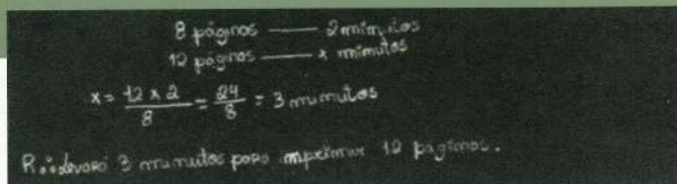 8 páginas — 2 minutos
12 páginas — x minutos
x = 12 x 2 / 8 = 24 / 8 = 3 minutos
R: Levará 3 minutos para imprimir 12 páginas.